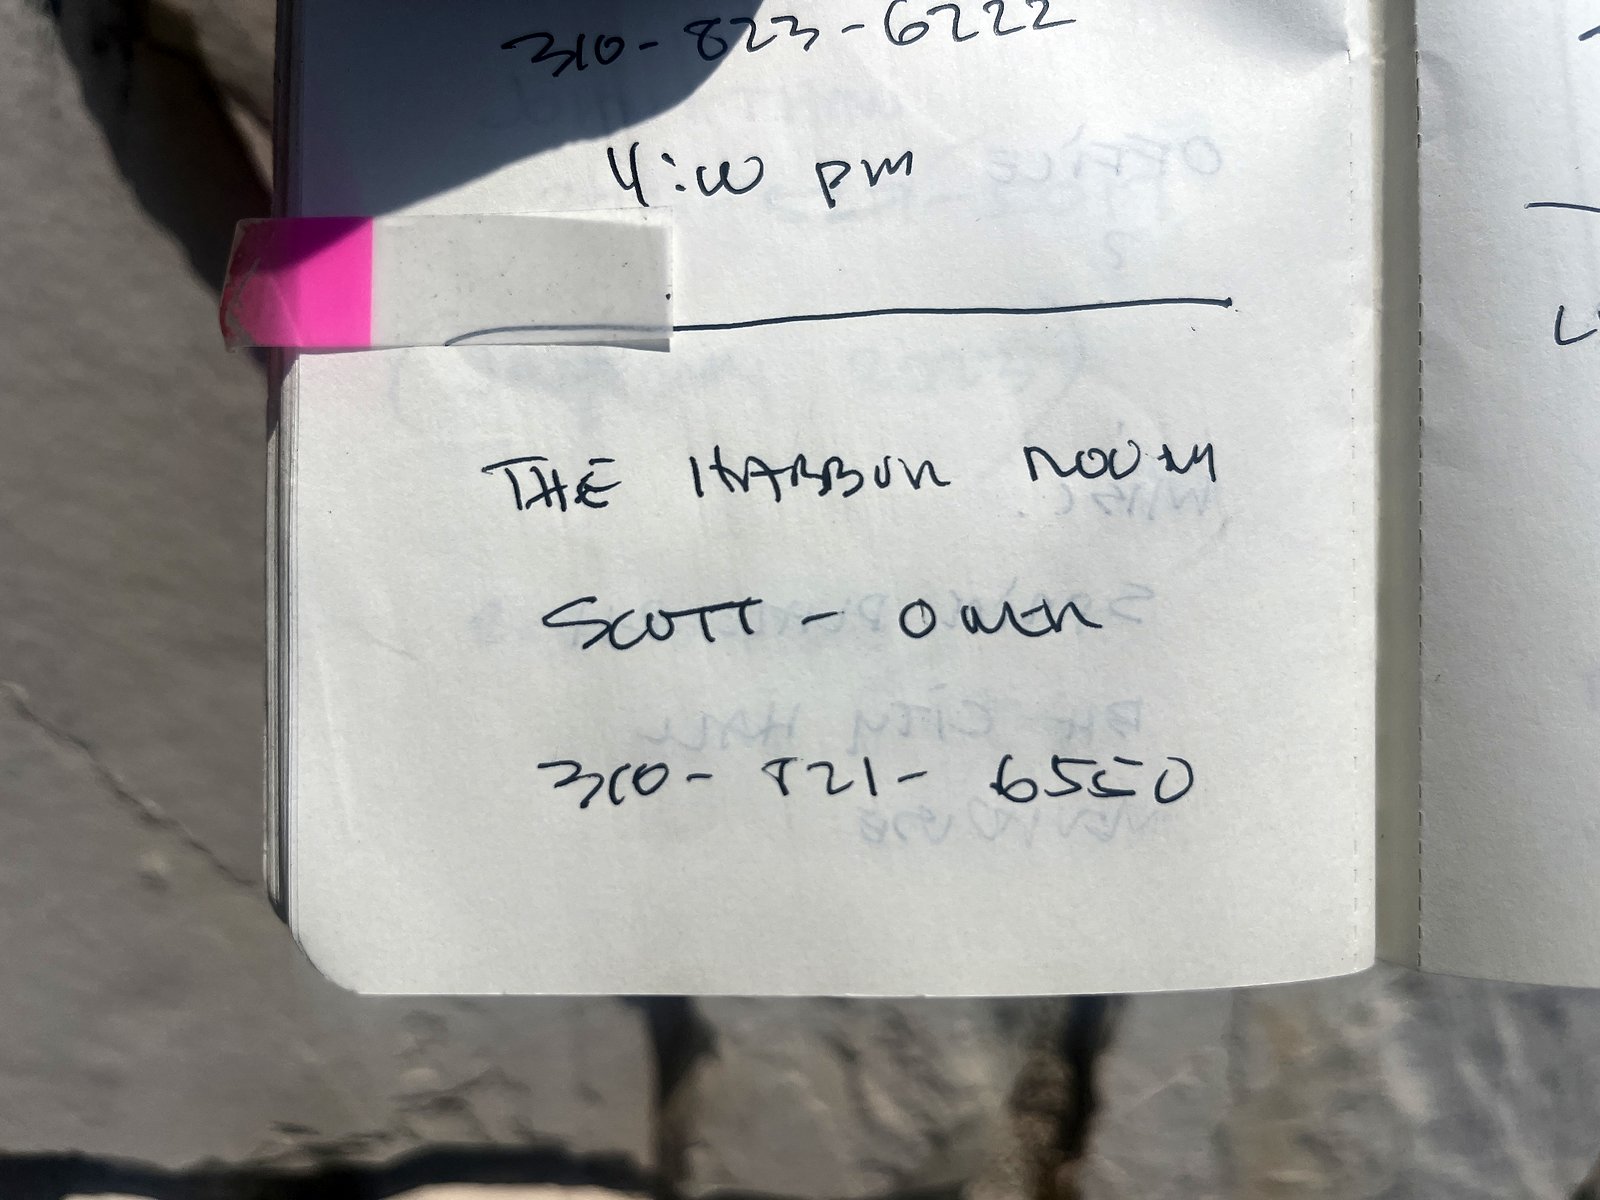 310-823-6222
4:00 pm
THE HARBOR ROOM
SCOTT - OWEN
310-821-6550